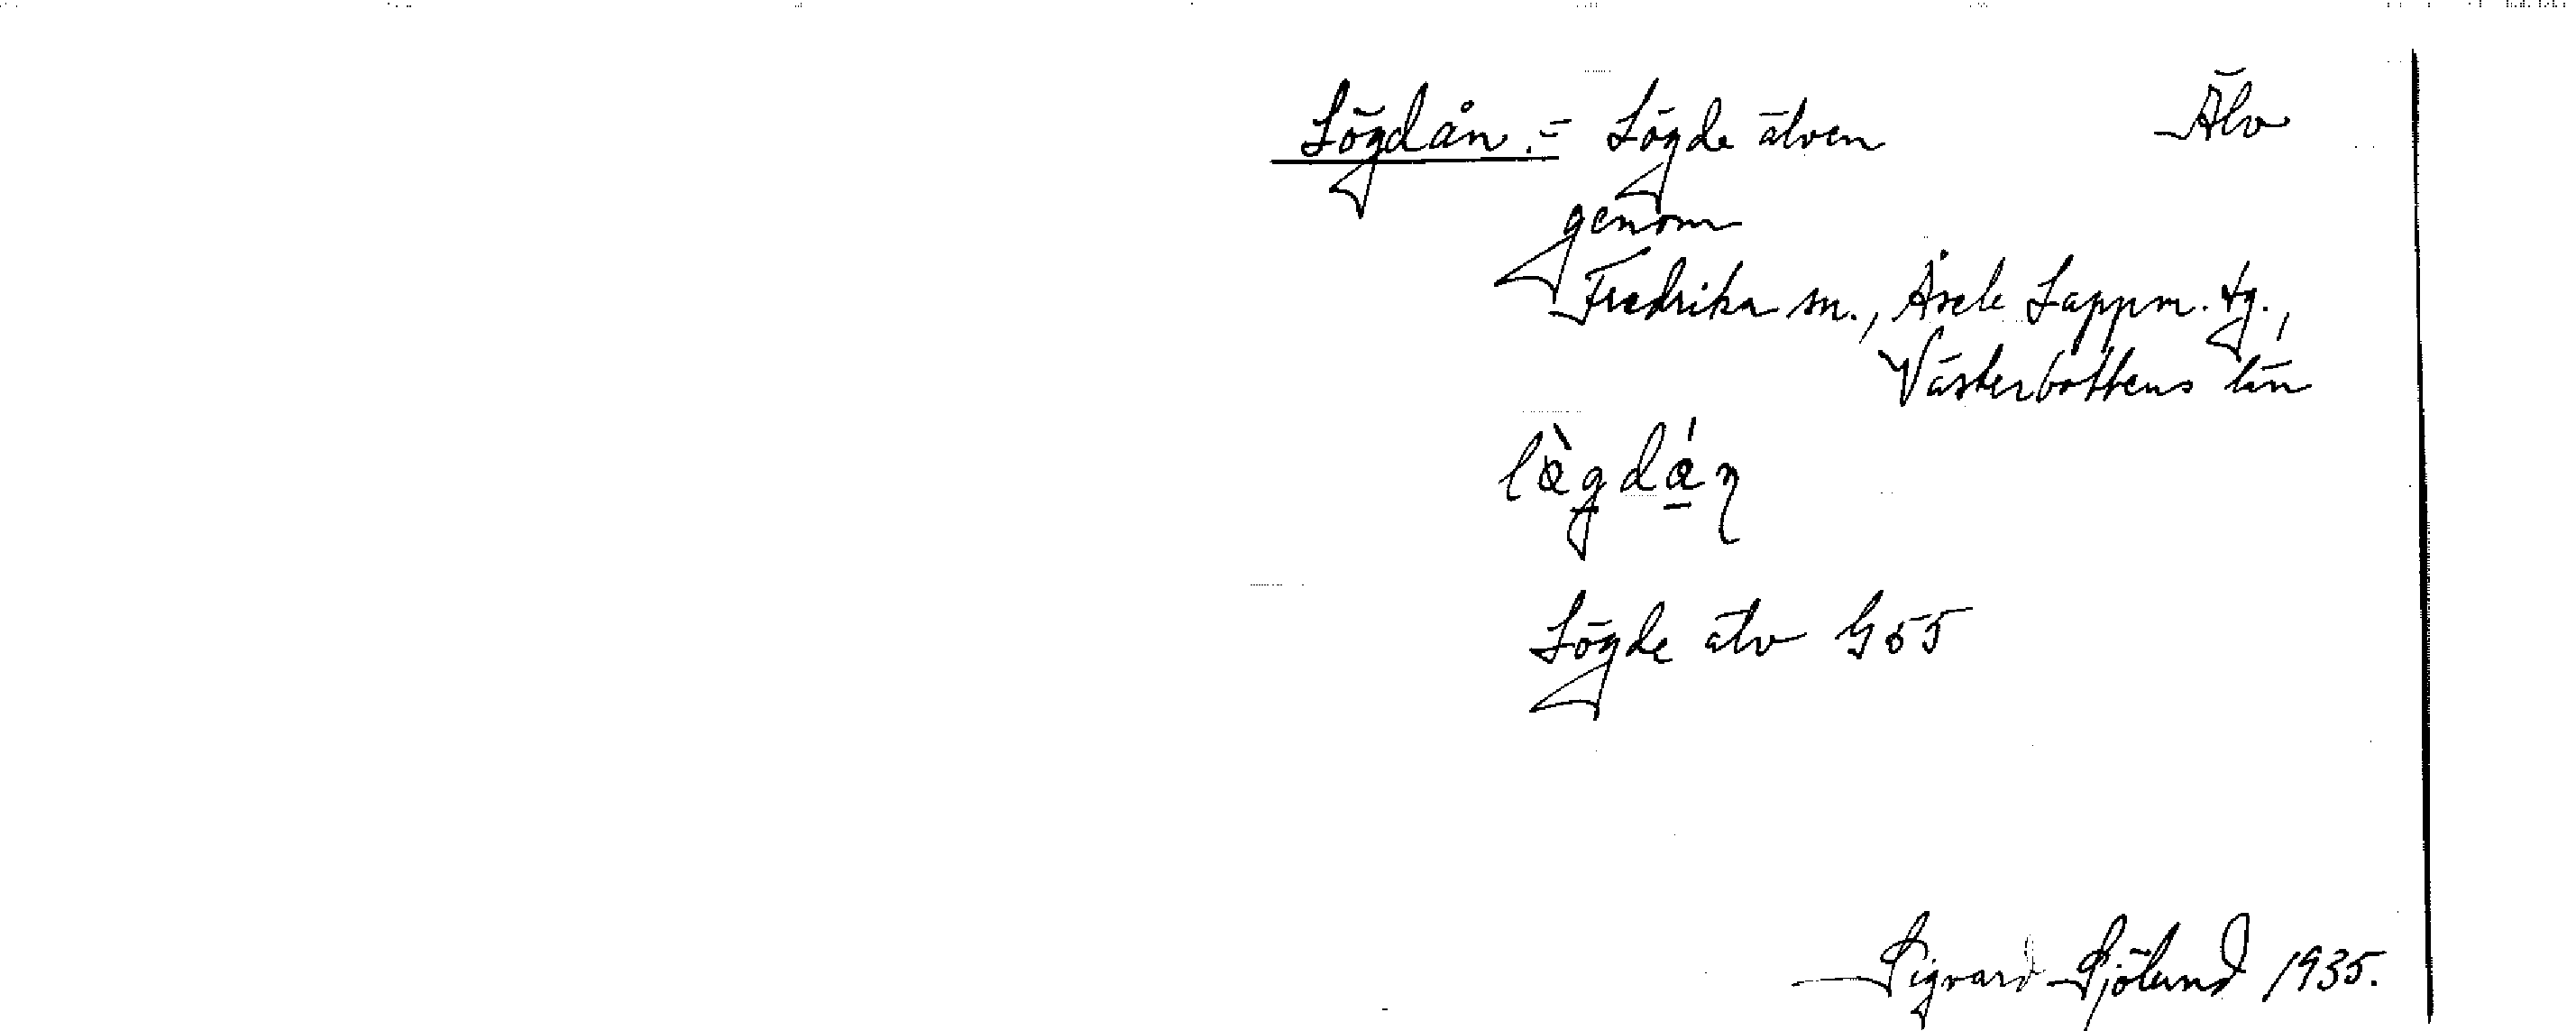 Lögdån .= Lögde älven Älv
genom
Fredrika sn., Åsele Lappm. tg.,
Västerbottens län
lògdáη
Lögde älv G55
Sigvard Sjölund 1935.